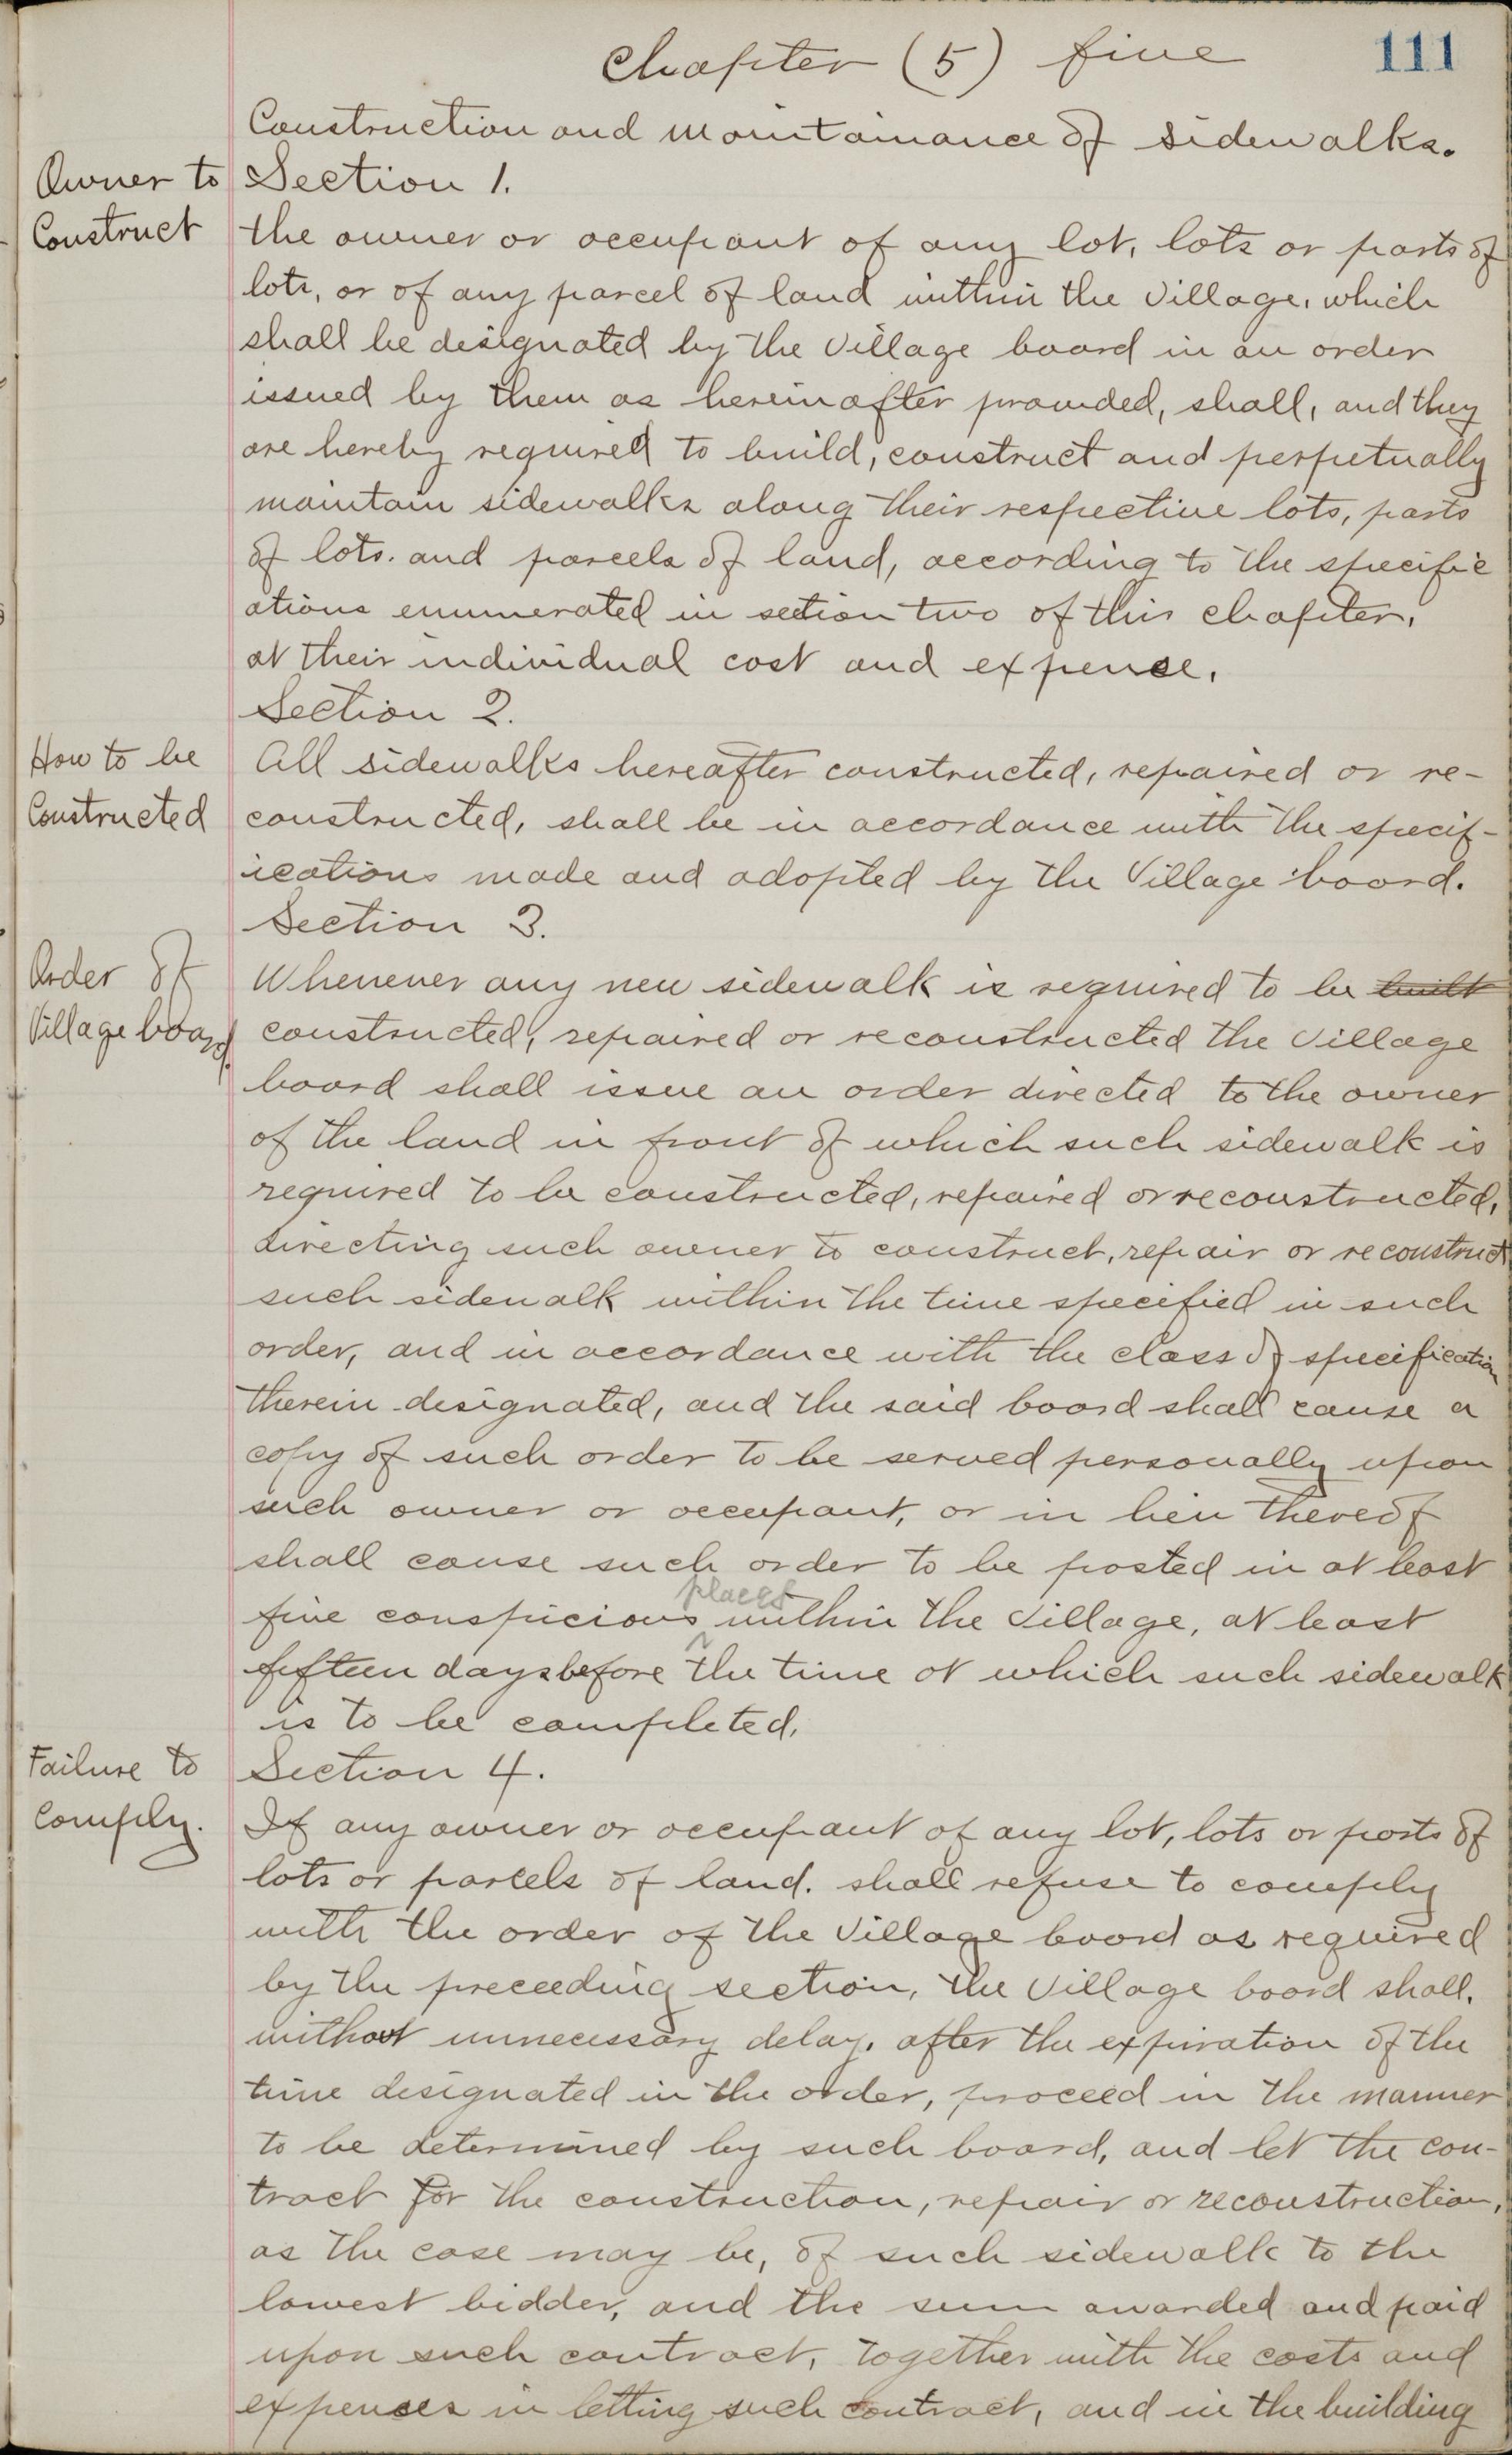 111
Chapter (5) five
Construction and maintainance of sidewalks.
Owner to
Construct
Section 1.
the owner or occupant of any lot, lots or parts of
lots, or of any parcel of land within the Village, which
shall be designated by the Village board in an order
issued by them as hereinafter provided, shall, and they
are hereby required to build, construct and perpetually
maintain sidewalks along their respective lots, parts
of lots. and parcels of land, according to the specific
ations enumerated in section two of this chapter,
at their individual cost and expense.
Section 2.
How to be
Constructed
All sidewalks hereafter constructed, repaired or re-
constructed, shall be in accordance with the specif-
ications made and adopted by the Village board.
Section 3.
Order of
Village board.
Whenever any new sidewalk is required to be built
constructed, repaired or reconstructed the Village
board shall issue an order directed to the owner
of the land in front of which such sidewalk is
required to be constructed, repaired or reconstructed,
directing such owner to construct, repair or reconstruct
such sidewalk within the time specified in such
order, and in accordance with the class of specification
therein designated, and the said board shall cause a
copy of such order to be served personally upon
such owner or occupant, or in lieu thereof
shall cause such order to be posted in at least
five conspicious places within the Village, at least
fifteen days before the time at which such sidewalk
is to be completed.
Failure to
Comply.
Section 4.
If any owner or occupant of any lot, lots or parts of
lots or parcels of land. shall refuse to comply
with the order of the Village board as required
by the preceeding section, the Village board shall.
without unnecessary delay, after the expiration of the
time designated in the order, proceed in the manner
to be determined by such board, and let the con-
tract for the construction, repair or reconstruction,
as the case may be, of such sidewalk to the
lowest bidder, and the sum awarded and paid
upon such contract, together with the costs and
expenses in letting such contract, and in the building